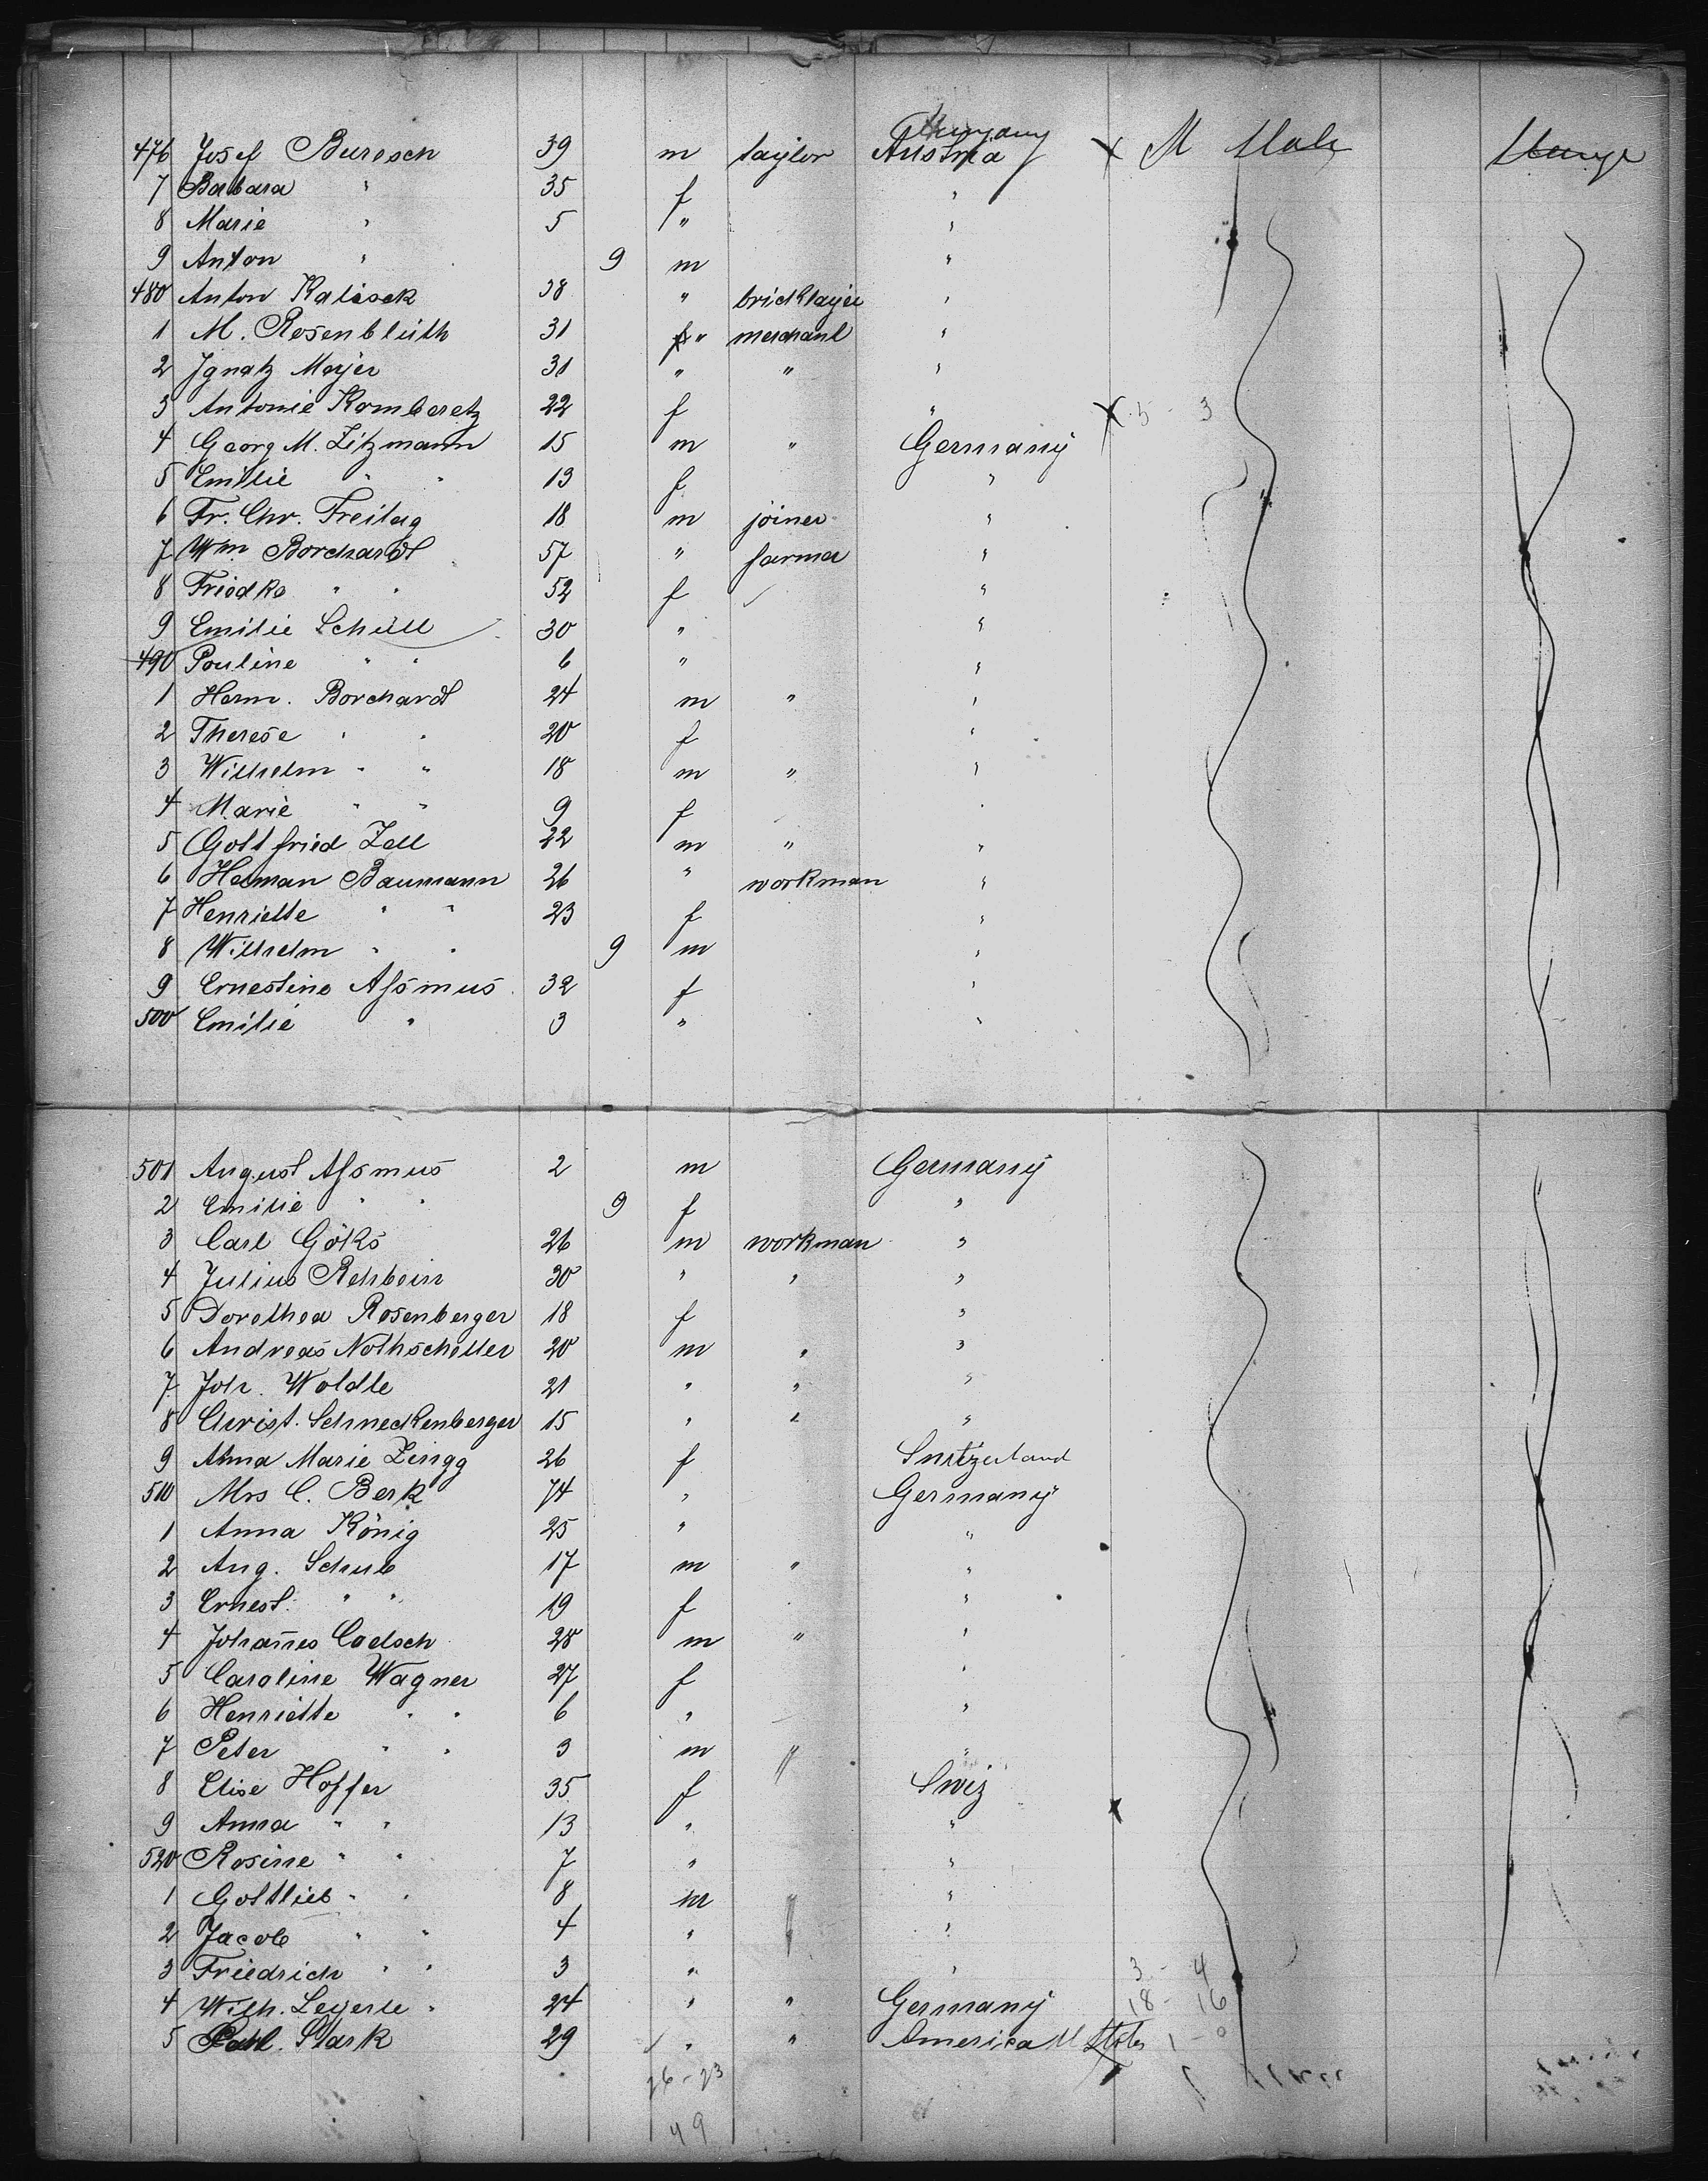 Hungary
476 Josef Buresch 39 m taylor Austria × M States Steerage
7 Barbara " 35 f "
8 Marie " 5 " "
9 Anton " 9 m "
480 Anton Kalisek 38 " bricklayer "
1 M. Rosenblüth 31 " merchant "
2 Ignatz Mayer 31 " " "
3 Antonie Komberetz 22 f " × 5 - 3
4 Georg M. Zitzmann 15 m " Germany
5 Emilie " " 13 f "
6 Fr. Chr. Freitag 18 m joiner "
7 Wm Borchardt 57 " farmer "
8 Friedke " " 52 f "
9 Emilie Schüll 30 " "
490 Pouline " " 6 " "
1 Herm. Borchardt 24 m " "
2 Therese " " 20 f "
3 Wilhelm " " 18 m " "
4 Marie " " 9 f "
5 Gottfried Zell 22 m " "
6 Herman Baumann 26 " workman "
7 Henriette " " 23 f "
8 Wilhelm " " 9 m "
9 Ernestine Assmus 32 f "
500 Emilie " 3 " "
501 August Assmus 2 m Germany
2 Emilie " " 9 f "
3 Carl Göks 26 m workman "
4 Julius Rehbein 30 " " "
5 Dorothea Rosenberger 18 f "
6 Andreas Nothscheller 20 m " "
7 Joh. Woldle 21 " " "
8 Christ. Schneckenberger 15 " " "
9 Anna Marie Zingg 26 f Switzerland
510 Mrs C. Berk 74 " Germany
1 Anna König 25 " "
2 Aug. Schub 17 m " "
3 Ernest. " " 19 f "
4 Johannes Cadsch 28 m " "
5 Caroline Wagner 27 f "
6 Henriette " " 6 " "
7 Peter " " 3 m " "
8 Elise Hoffer 35 f Swiz
9 Anna " " 13 " "
520 Rosine " " 7 " "
1 Gottlieb " " 8 m " "
2 Jacob " " 4 " " "
3 Friedrich " " 3 " " 3 - 4
4 Wilh. Leyerle 24 " " Germany 18 - 16
5 Stark 29 " " America U States 1 - 0
26 - 23
49